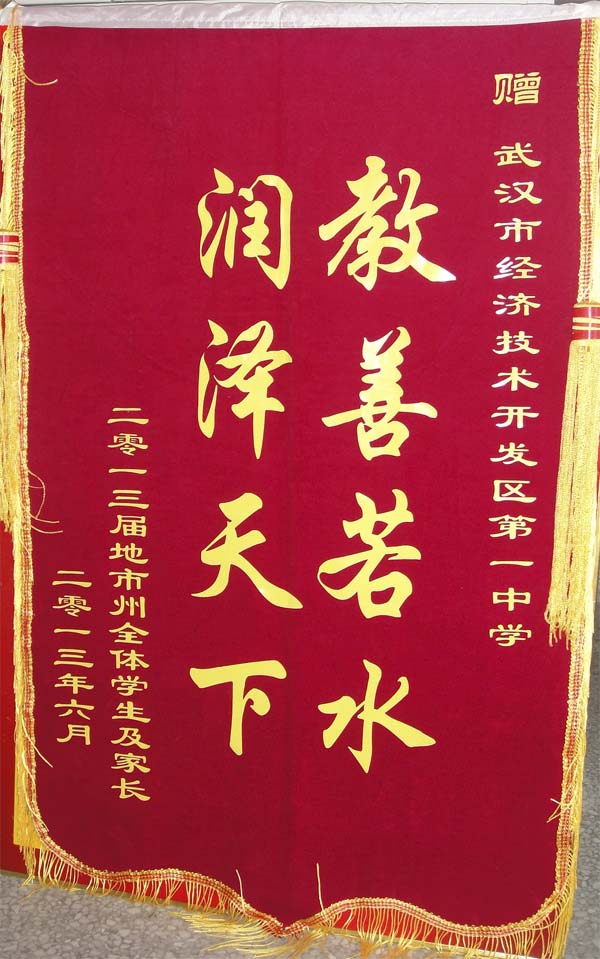 赠 武汉市经济技术开发区第一中学
教善若水
润泽天下
二零一三届地市州全体学生及家长
二零一三年六月